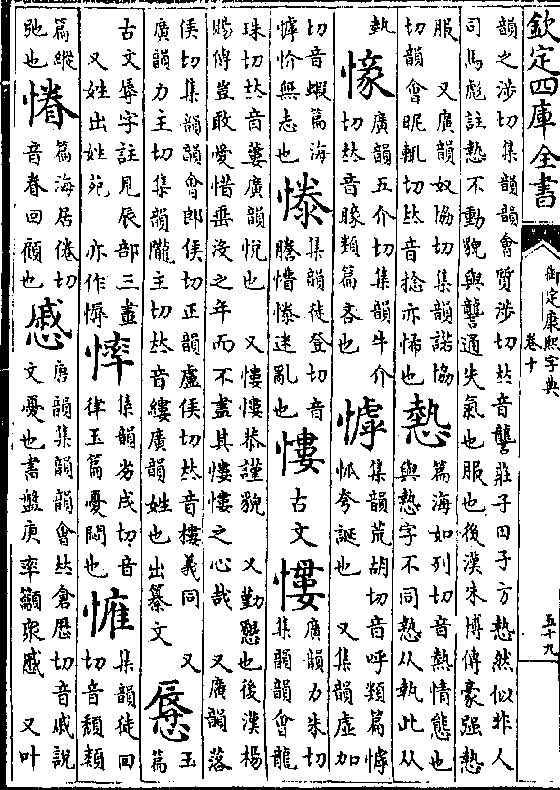 欽定四庫全書
御定康熙字典
卷十
五十九
韻之涉切集韻韻會質涉切𠀤音讋莊子田子方慹然似非人
司馬彪註慹不動貌與讋通失氣也服也後漢朱博傳豪强慹
服 又廣韻奴協切集韻諾協
切韻會昵輒切𠀤音捻亦怖也
慹
篇海如列切音熱情態也
與慹字不同慹从執此从
熱
㥸
廣韻五介切集韻牛介
切𠀤音
類篇吝也
嘑
集韻荒胡切音呼類篇
怓夸誕也 又集韻虛加
切音蝦篇海
忦無志也
㦂
集韻徒登切音
騰懵㦂迷亂也
慺
古文
慺
廣韻力朱切
集韻韻會龍
珠切𠀤音蔞廣韻悅也 又慺慺恭謹貌 又勤懇也後漢楊
賜傳豈敢愛惜垂沒之年而不盡其慺慺之心哉 又廣韻落
侯切集韻韻會郎侯切正韻盧侯切𠀤音樓義同 又
廣韻力主切集韻隴主切𠀤音縷廣韻姓也出纂文
㥲
玉
篇
古文辱字註見辰部三畫
又姓出姓苑 亦作媷
㥶
集韻劣戌切音
律玉篇憂悶也
慛
集韻徒回
切音穨類
篇蹤
弛也
惓
篇海居倦切
音眷回顧也
慼
唐韻集韻韻會𠀤倉歷切音戚說
文憂也書盤庚率籲衆慼 又叶